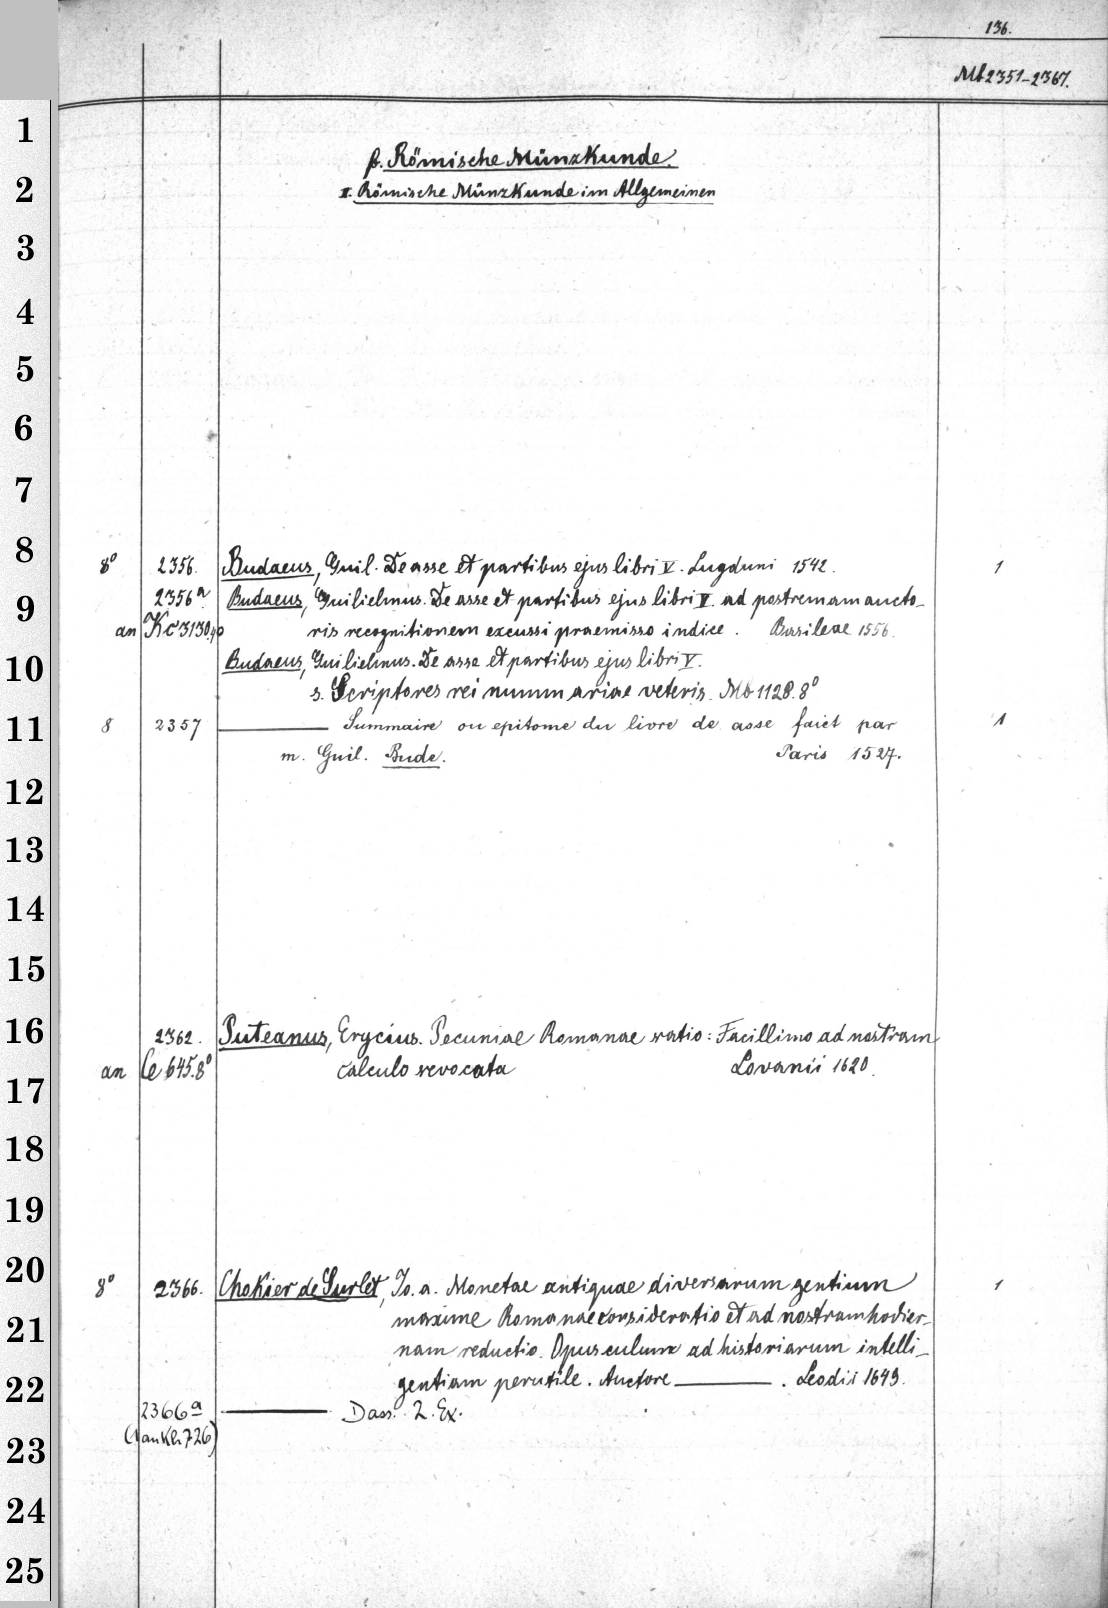 136.
Mb 2351-2367.
1
β. Römische Münzkunde.
2
II. Römische Münzkunde im Allgemeinen
3
4
5
6
7
8
8° 2356. Budaeus, Guil. De asse et partibus ejus libri V. Lugduni 1542. 1
9
2356a. Budaeus, Guilielmus. De asse et partibus ejus libri V. ad postremam aucto-
an Kc 3130.4° ris recognitionem excussi praemisso indice. Basileae 1556.
10
Budaeus, Guilielmus. De asse et partibus ejus libri V.
s. Scriptores rei nummariae veteris. Mb 1128.8°
11
8 2357 ——— Summaire ou epitome du livre de asse faict par 1
m. Guil. Bude. Paris 1527.
12
13
14
15
16
2362. Puteanus, Erycius. Pecuniae Romanae ratio: Facillimo ad nostram
an Ce 645.8° calculo revocata Lovanii 1620.
17
18
19
20
8° 2366. Chokier de Surlet, Jo. a. Monetae antiquae diversarum gentium 1
21
maxime Romanae consideratio et ad nostram hodier-
nam reductio. Opusculum ad historiarum intelli-
22
gentiam perutile. Auctore ———. Leodii 1649.
2366a ——— Dass. 2. Ex.
23
(1 an Kh 726)
24
25